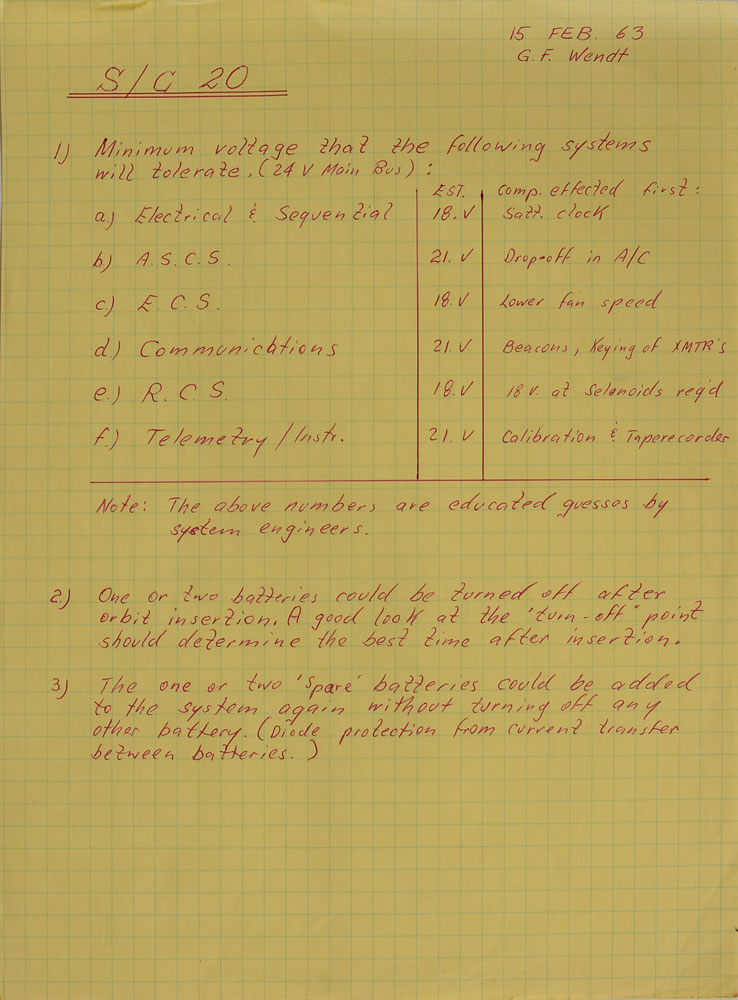 15 FEB. 63
G.F. Wendt
S/C 20
1) Minimum voltage that the following systems
will tolerate. (24 V Main Bus) :
EST. comp. effected first:
a.) Electrical & Sequential 18. V Satt. clock
b) A.S.C.S. 21. V Drop-off in A/C
c) E.C.S. 18. V Lower fan speed
d.) Communications 21. V Beacons, Keying of XMTR's
e.) R.C.S. 18. V 18 V. at Selanoids req'd
f.) Telemetry/Instr. 21. V Calibration & Taperecorder
Note: The above numbers are educated guesses by
system engineers.
2.) One or two batteries could be turned off after
orbit insertion. A good look at the "turn-off" point
should determine the best time after insertion.
3) The one or two 'spare' batteries could be added
to the system again without turning off any
other battery. (Diode protection from current transfer
between batteries.)